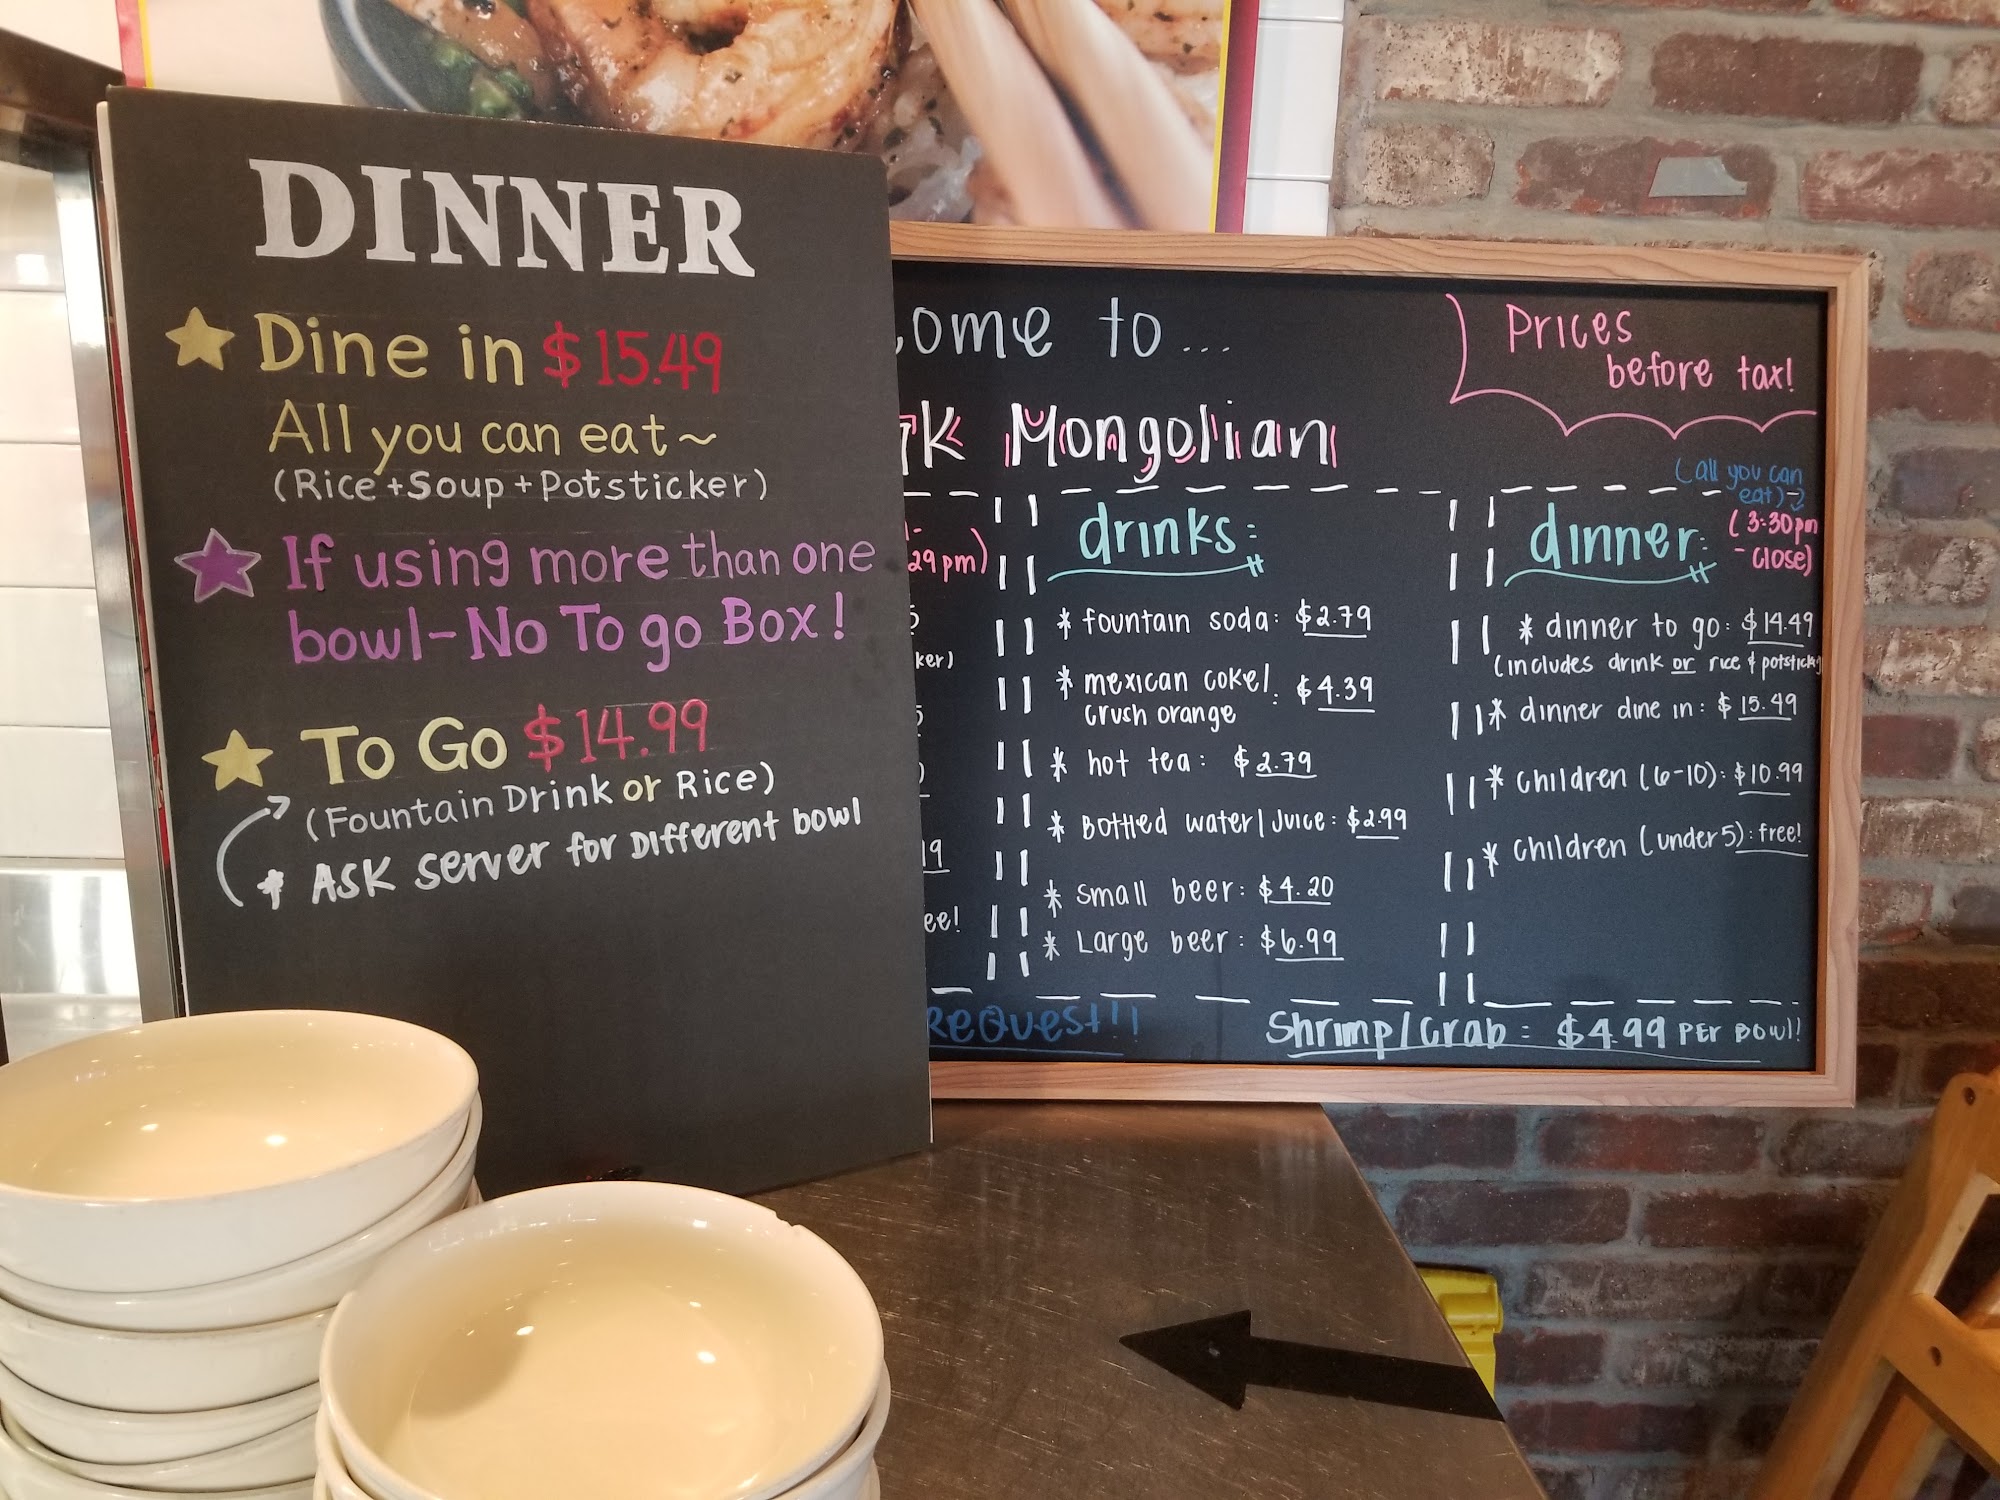 DINNER
Dine in $15.49
All you can eat~
(Rice+Soup+Potsticker)
If using more than one
bowl-No To go Box!
To Go $14.99
(Fountain Drink or Rice)
* ASK server for Different bowl
come to...
K Mongolian
Prices
before tax!
29pm)
ker)
19
ee!
drinks:
* fountain soda: $2.79
* mexican coke/ : $4.39
crush orange
* hot tea: $2.79
* Bottled water/Juice: $2.99
* small beer: $4.20
* Large beer: $6.99
(all you can
eat)
dinner:
(3:30pm
- close)
* dinner to go: $14.49
(includes drink or rice & potstick
* dinner dine in: $15.49
* children (6-10): $10.99
* children (under 5): free!
Request!!
Shrimp/Crab: $4.99 PER BOWl!